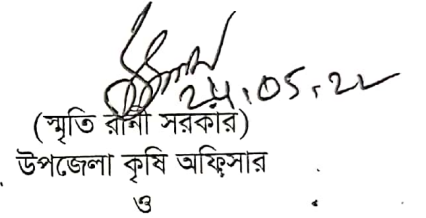 24.05.22
(স্মৃতি রানী সরকার)
উপজেলা কৃষি অফিসার
ও